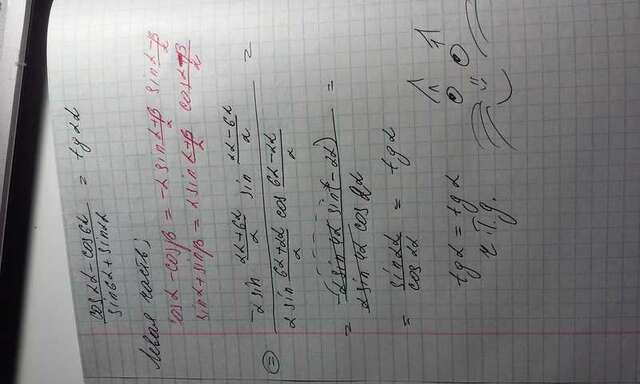 cos2α - cos6α / sin6α + sin2α = tg 2α
Левая часть:
cosα - cosβ = -2 sin α+β/2 sin α-β/2
sinα + sinβ = 2 sin α+β/2 cos α-β/2
⊜ -2 sin 2α+6α/2 sin 2α-6α/2 / 2 sin 6α+2α/2 cos 6α-2α/2 =
= -2 sin 4α sin(-2α) / 2 sin 4α cos 2α =
= sin2α / cos2α = tg 2α
tg2 = tg 2
ч.т.д.